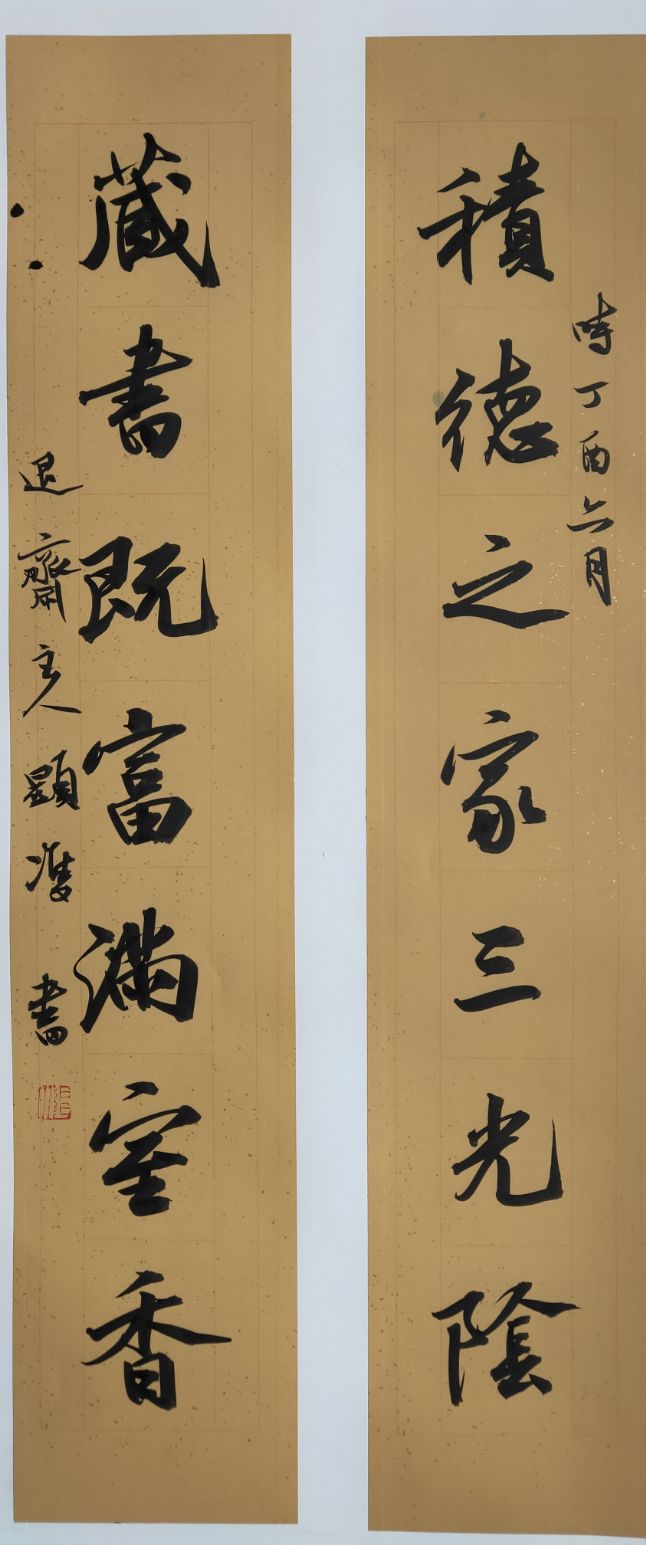 積德之家三光陰
時丁酉六月
藏書既富滿室香
退齋主人顕準書